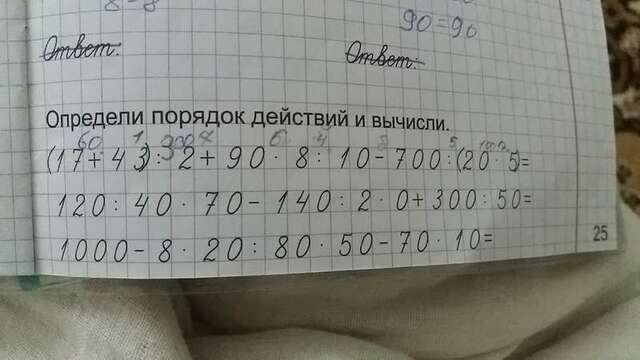 8-8
90=90
Ответ:
Ответ:
Определи порядок действий и вычисли.
(17+43):2+90·8:10-700:(20·5)=
120:40·70-140:2·0+300:50=
1000-8·20:80·50-70·10=
25